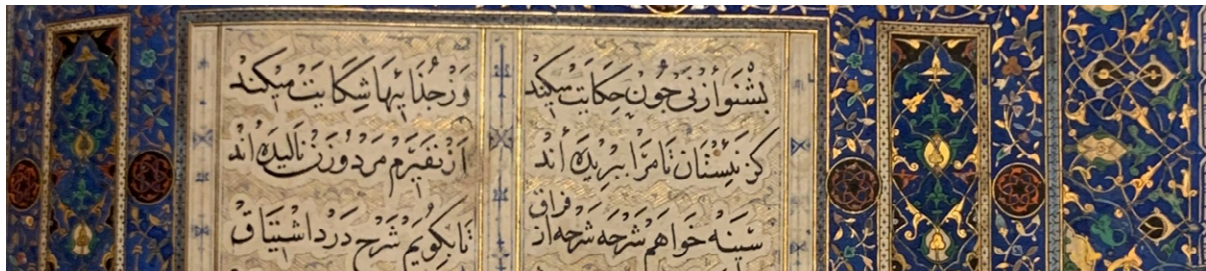 بشنو از نی چون حکایت میکند وز جذاییها شکایت میکند
کز نیستان تا مرا ببریده اند از نفیرم مرد و زن نالیده اند
سینه خواهم شرحه شرحه از فراق تا بگویم شرح درد اشتیاق